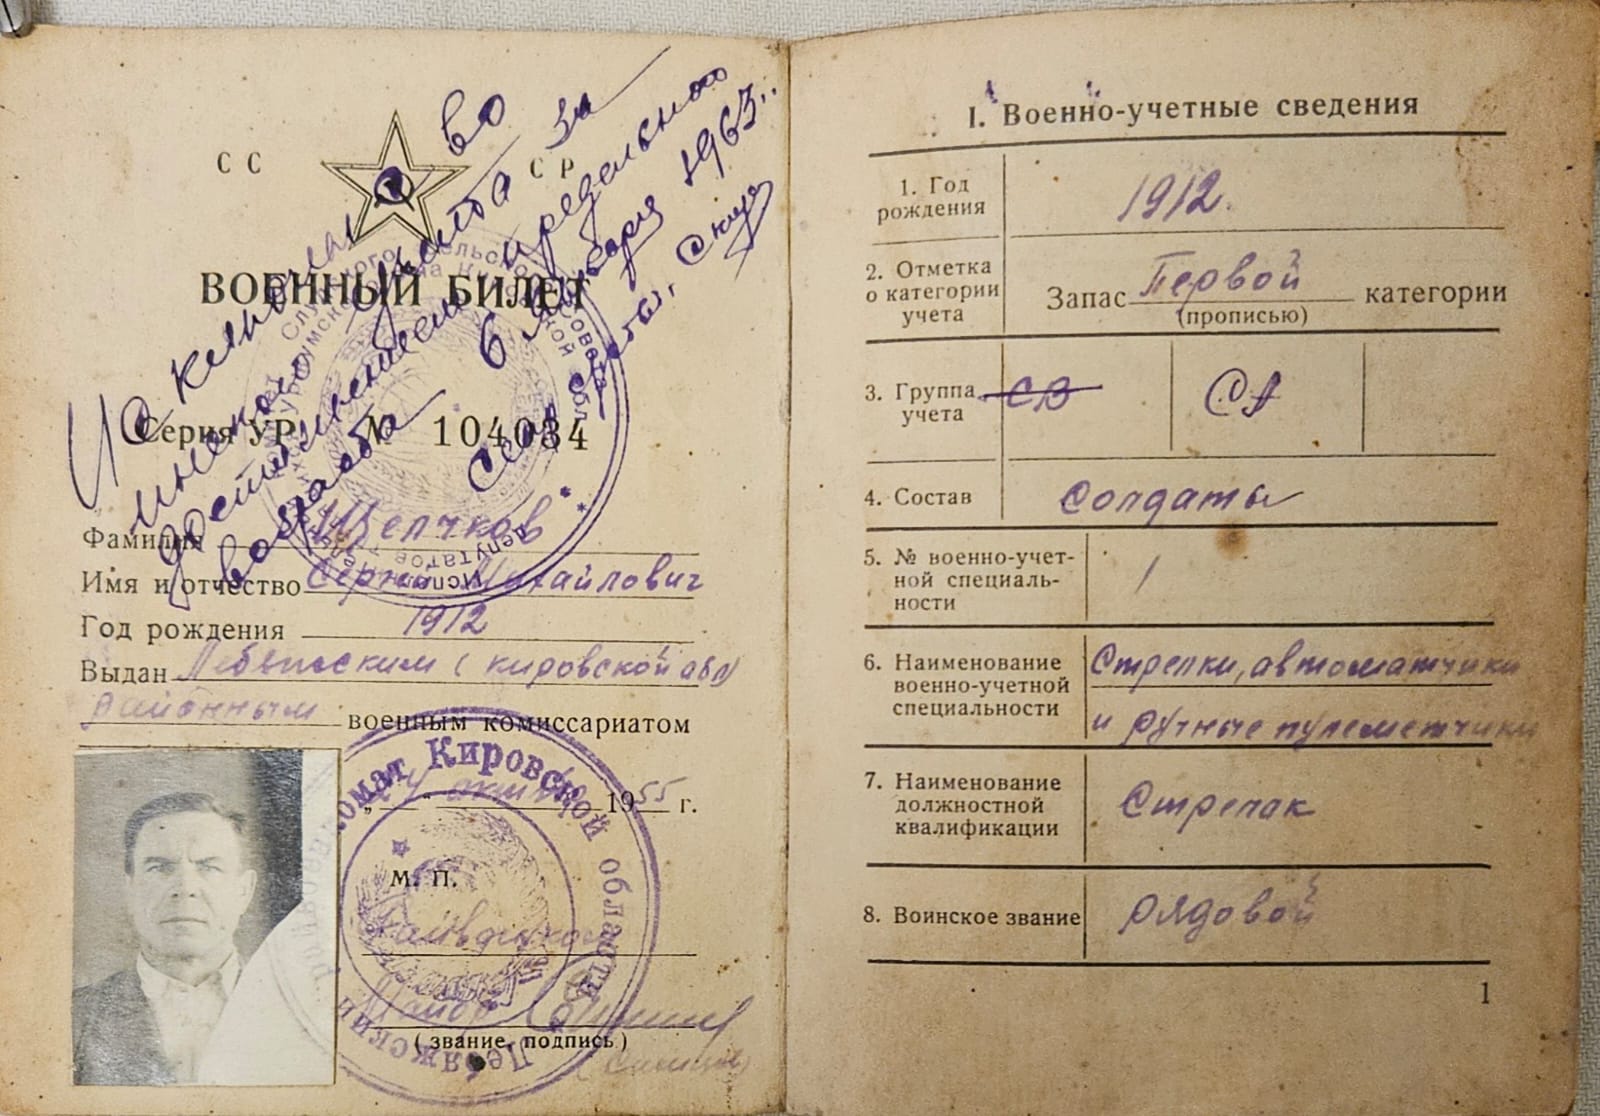 СС СР
ВОЕННЫЙ БИЛЕТ
Серия УР № 104034
Исключен
во
инского учета за
достижением предельного
возраста 6 января 1963
Фамилия
Имя и отчество Сергей Михайлович
Год рождения 1912
Выдан Лебяжским (Кировской обл)
Районным военным комиссариатом
1955 г.
М. П.
Райвоенком
Майор
(звание, подпись)
комат Кировской области
Лебяжский
I. Военно-учетные сведения
1. Год
рождения
1912
2. Отметка
о категории
учета
Запас Первой категории
(прописью)
3. Группа
учета
СВ
СА
4. Состав
Солдаты
5. № военно-учет-
ной специаль-
ности
1
6. Наименование
военно-учетной
специальности
Стрелки, автоматчики
и ручные пулеметчики
7. Наименование
должностной
квалификации
Стрелок
8. Воинское звание
рядовой
1